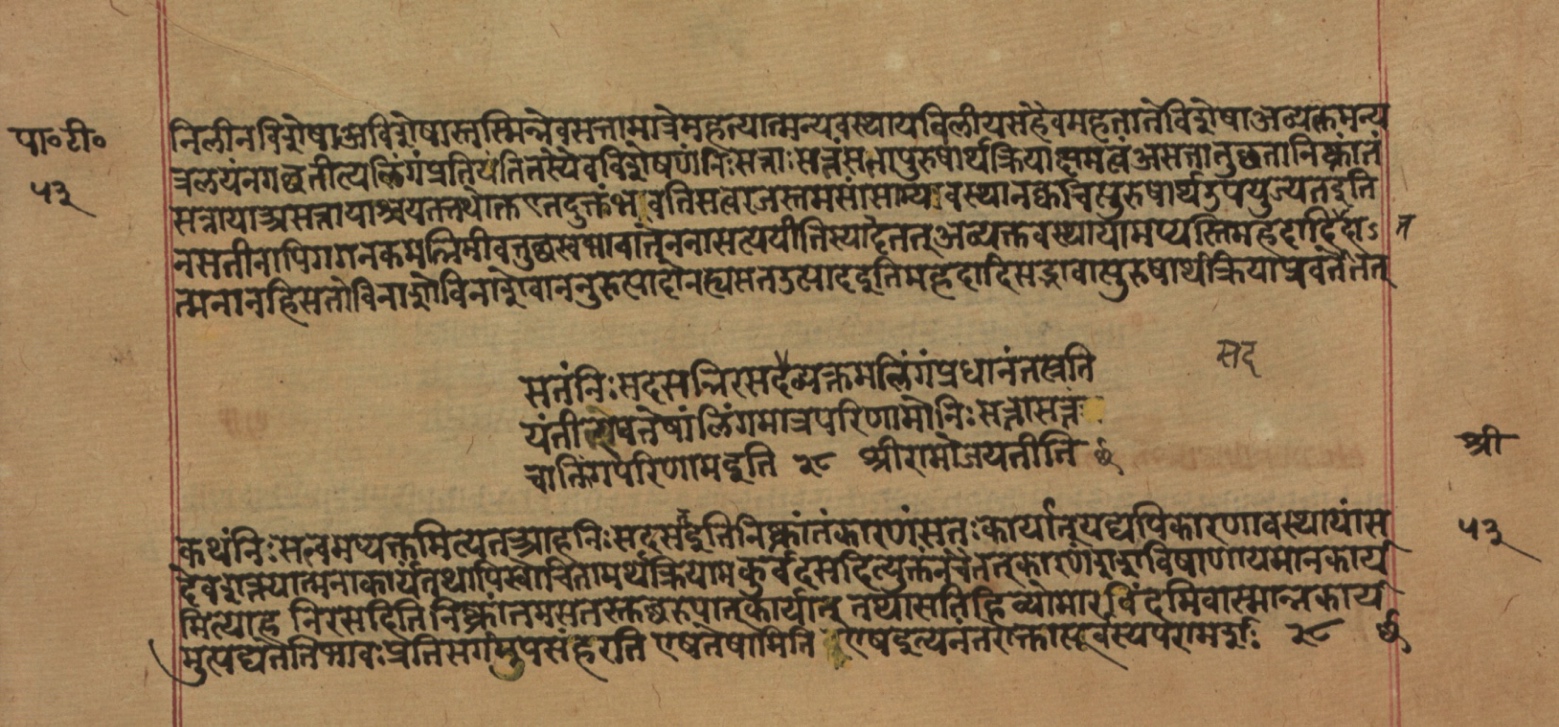 पा॰टी॰
५३
निलीनविशेषाअविशेषास्तस्मिन्नेवसत्तामात्रेमहत्यात्मन्यवस्थायविलीयसहैवमहतातेविशेषाअव्यक्तमन्य
त्रलयंनगछतीत्यलिंगंप्रतियंतितस्यैवविशेषणंनिःसत्ताःसत्तंसत्तापुरुषार्थक्रियाक्षमत्वंअसत्तातुछतानिष्क्रांतं
सत्तायाअसत्तायाश्चयत्तत्तथोक्तंएतदुक्तंभवतिसत्वरजस्तमसांसाम्यावस्थानक्वचित्पुरुषार्थउपयुज्यतइति
नसतीनापिगगनकमलिनीवत्तुछस्वभावातेननासत्यपीतिस्यादेतत्अव्यक्तावस्थायामप्यस्तिमहदादिहाऽ त
त्मनानहिसतोविनाशोविनाशेवाननुरुत्पादोनह्यसतउत्पादइतिमहदादिसद्भावात्पुरुषार्थक्रियाप्रवर्तेतत्
सतंनिःसदसन्निरसदव्यक्तमलिंगंप्रधानंतत्प्रति सद
यंतीत्येषतेषांलिंगमात्रपरिणामोनिःसत्तासत्तं
चालिंगपरिणामइति २८ श्रीरामोजयतीति
श्री
५३
कथंनिःसत्वमप्यक्तमित्यतआहनिःसदसदइतिनिष्क्रांतंकारणंसतःकार्यात्यद्यपिकारणावस्थायांस
देवशक्त्यात्मनाकार्यंतथापिस्वोचितामर्थक्रियामकुर्वदसदित्युक्तंनचैतत्कारणंशशविषाणायमानकार्य
मित्याह निरसदितिनिष्क्रांतमसतस्तुछरूपात्कार्यात् तथासतिहिव्योमारविंदमिवास्मान्नकार्य
मुत्पद्येतेतिभावःप्रतिसर्गमुपसंहरति एषतेषामिति एषइत्यनंतरोक्तात्पूर्वस्यपरामर्शः २८